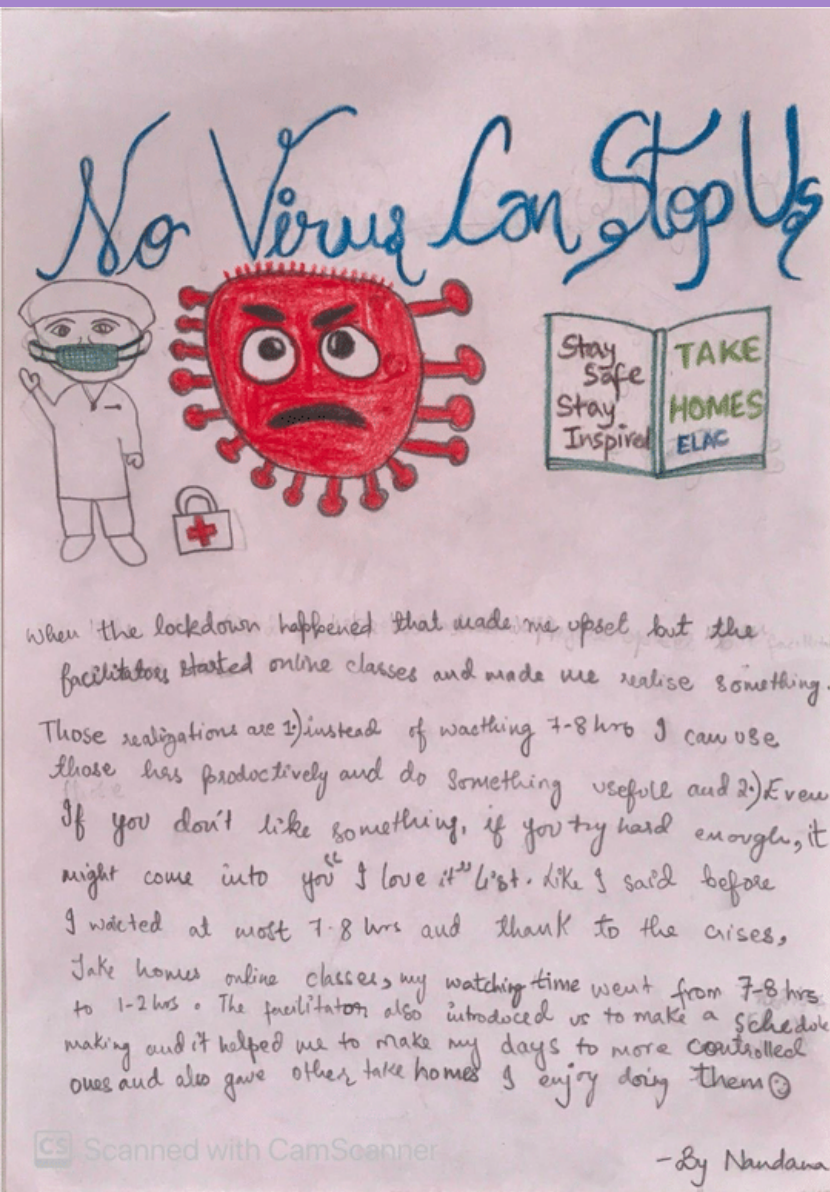 No Virus Can Stop Us
Stay
Safe
Stay
Inspired
TAKE
HOMES
ELAC
When the lockdown happened that made me upset but the
facilitators started online classes and made me realise something.
Those realizations are 1.) instead of wacthing 7-8 hrs I can use
those hrs prodoctively and do something usefull and 2.) Even
If you don't like something, if you try hard enough, it
might come into you "I love it" list. Like I said before
I wacted at most 7-8 hrs and thank to the crises,
Take homes online classes, my watching time went from 7-8 hrs
to 1-2 hrs. The facilitator also introduced us to make a schedule
making and it helped me to make my days to more controlled
ones and also gave other take homes I enjoy doing them☺
CS Scanned with CamScanner
-By Nandana